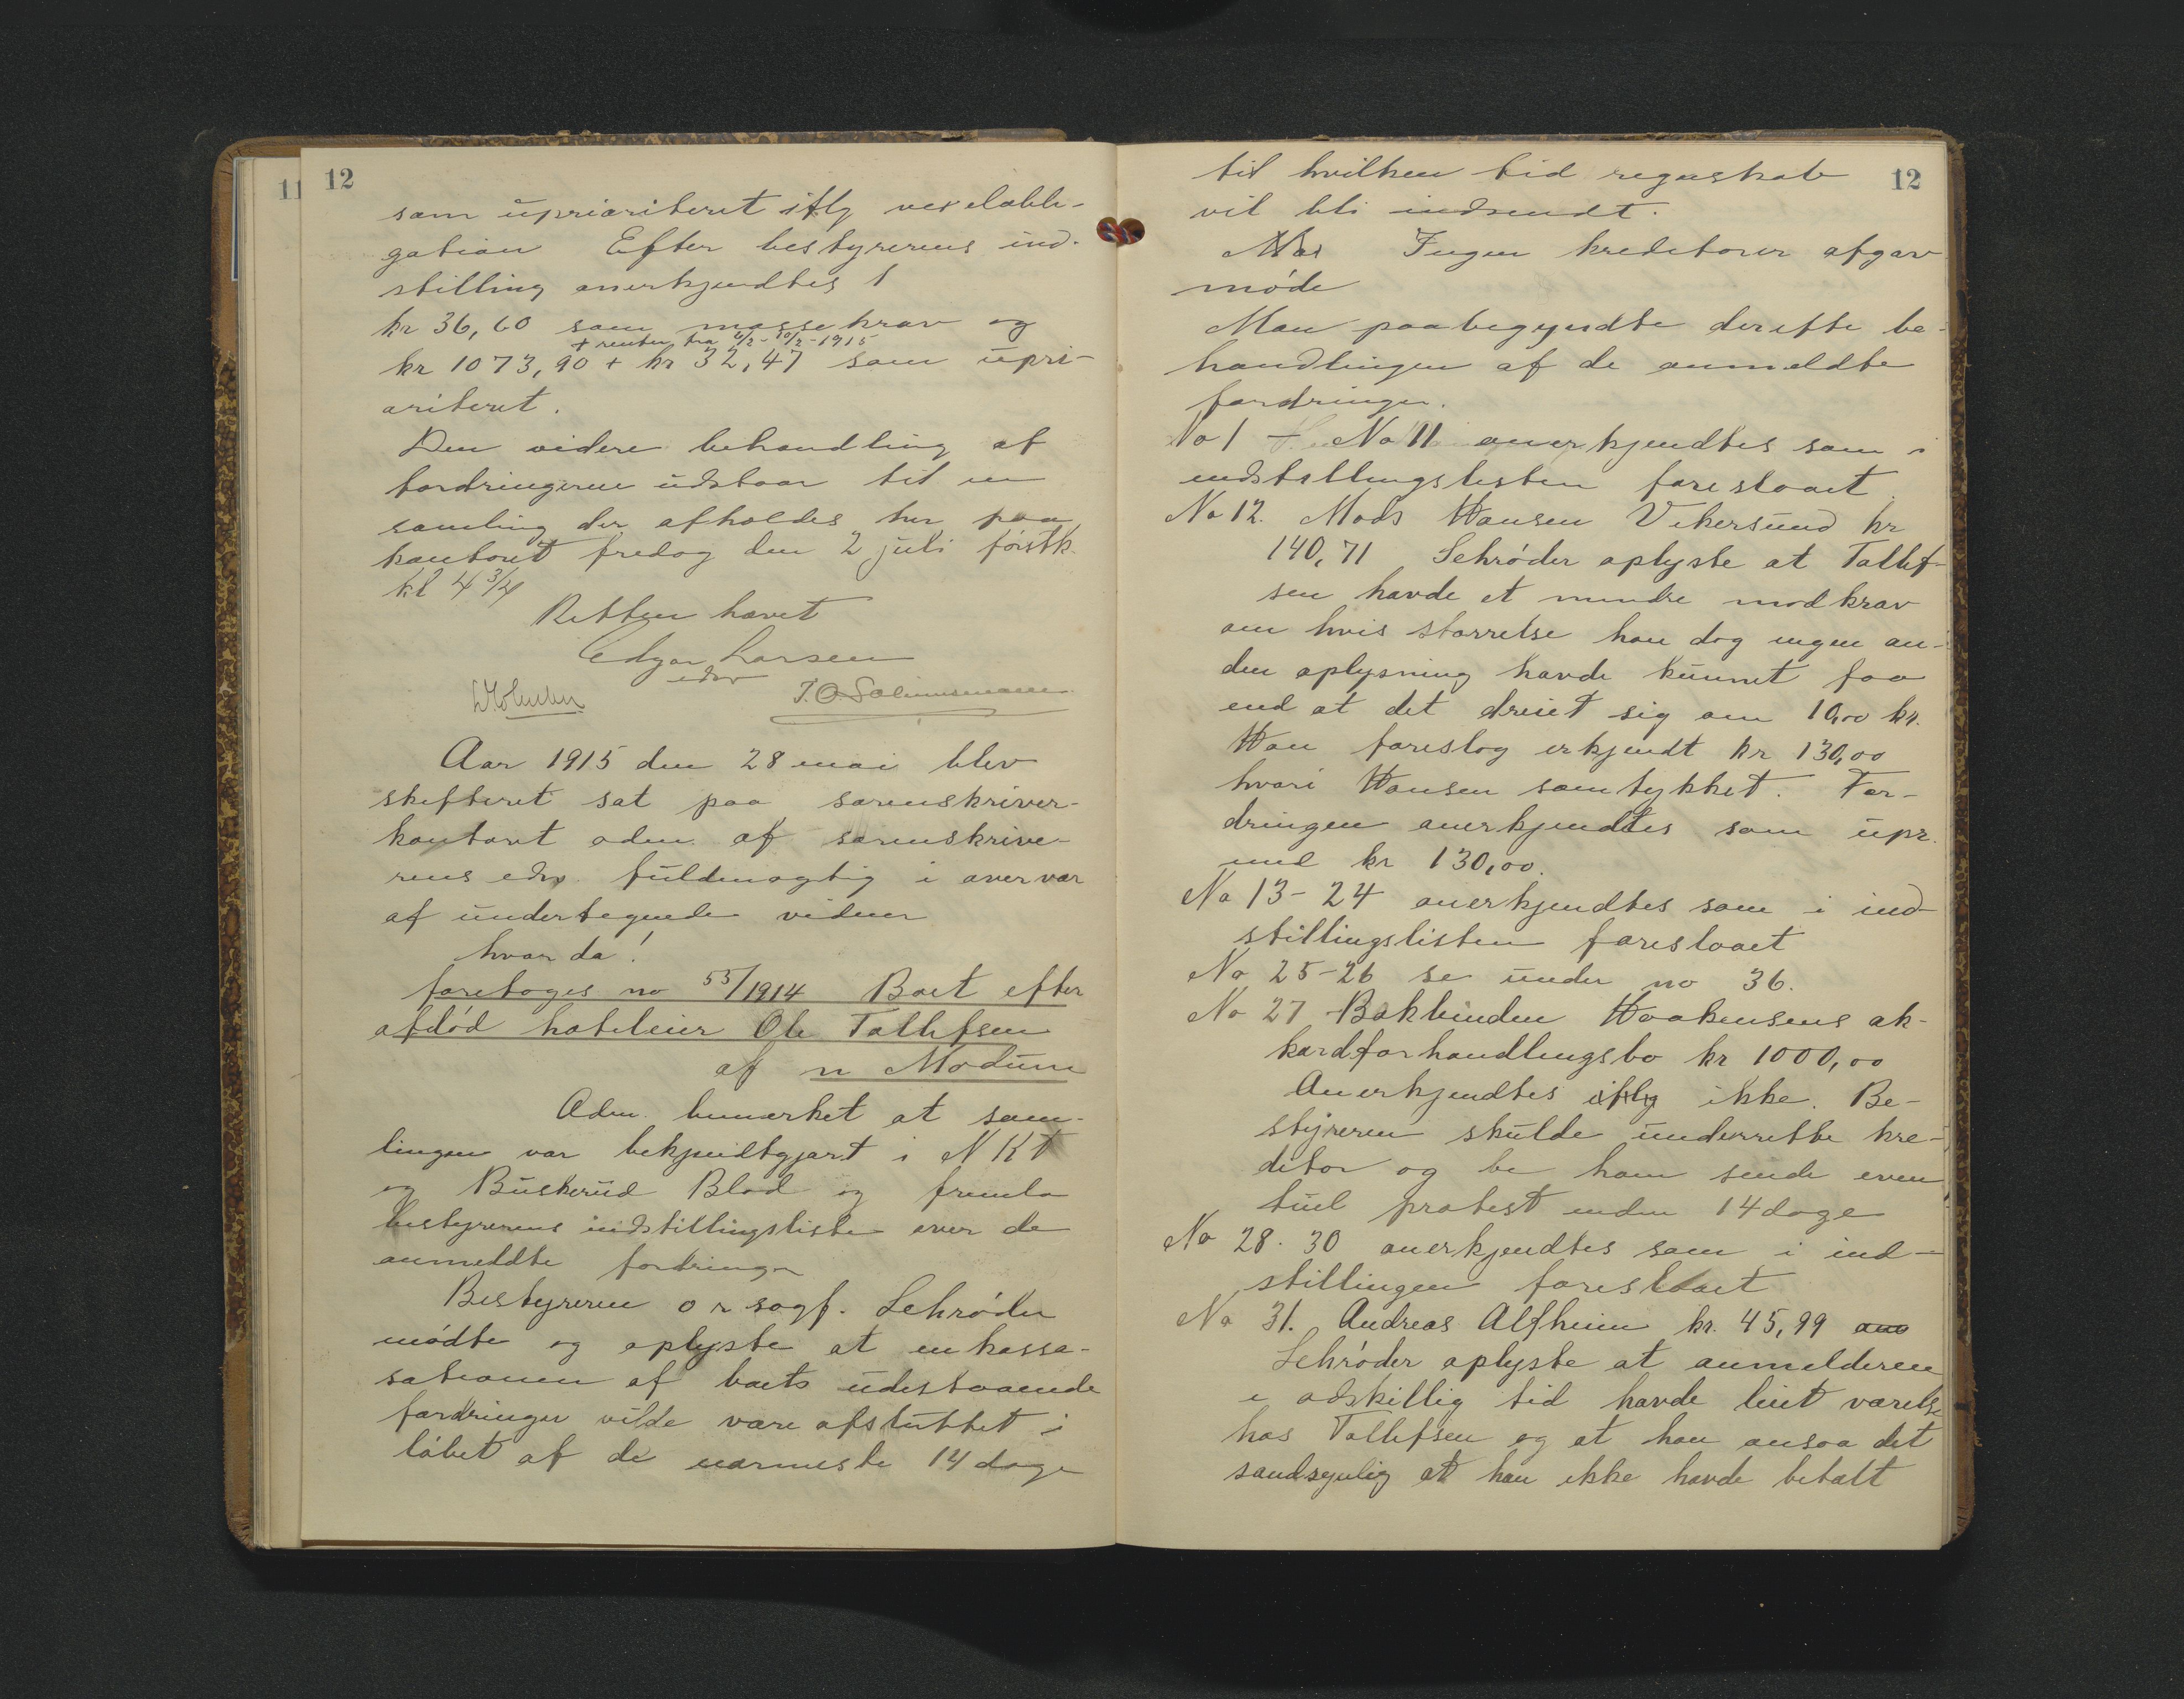 11
12
som uprioriteret iflg vexelobli-
gation Efter bestyrerens ind-
stilling anerkjendtes
kr 36,60 som massekrav og
+ renter fra 6/2 - 10/2 - 1915
kr 1073,90 + kr 32,47 som upri-
oriteret.
Den videre behandling af
fordringerne udstaar til en
samling der afholdes her paa
kontoret fredag den 2 juli førstk.
kl 4 3/4
Retten hævet
Edgar Larsen
edsv
Aar 1915 den 28 mai blev
skifteret sat paa sorenskriver-
kontoret adm. af sorenskrive-
rens edsv. fuldmægtig i overvær
af undertegnede vidner
hvor da!
foretoges no 55/1914 Boet efter
afdød hoteleier Ole Tollefsen
af n Modum
Adm. bemærket at sam-
lingen var bekjendtgjort i N K t
og Buskerud Blad og fremla
bestyrerens indstillingsliste over de
anmeldte fordringer
Bestyreren o r sagf. Schrøder
mødte og oplyste at inkasso-
sationen af boets udestaaende
fordringer vilde være afsluttet i
løbet af de nærmeste 14 dage
12
til hvilken tid regnskab
vil bli indsendt.
Ingen kreditorer afgav
møde
Man paabegyndte derefte be-
handlingen af de anmeldte
fordringer.
No 1 - No 11 anerkjendtes som i
indstillingslisten foreslaaet
No 12. Mads Hansen Vikersund kr
140,71 Schrøder oplyste at Tollef-
sen havde et mindre modkrav
om hvis størrelse han dog ingen an-
den oplysning havde kunnet faa
end at det dreiet sig om 10,00 kr.
Han foreslog erkjendt kr 130,00
hvori Hansen samtykket. For-
dringen anerkjendtes som upr.
med kr 130,00.
No 13 - 24 anerkjendtes som i ind-
stillingslisten foreslaaet
No 25-26 se under no 36.
No 27 Bokbinder Haakensens ak-
kordforhandlingsbo kr 1000,00
Anerkjendtes iflg ikke. Be-
styreren skulde underrette kre-
ditor og be ham sende even
tuel protest inden 14 dage
No 28. 30 anerkjendtes som i ind-
stillingen foreslaaet
No 31. Andreas Alfheim kr. 45,99 ano
Schrøder oplyste at anmelderen
i adskillig tid havde leiet værelse
hos Tollefsen og at han ansaa det
sandsynlig at han ikke havde betalt